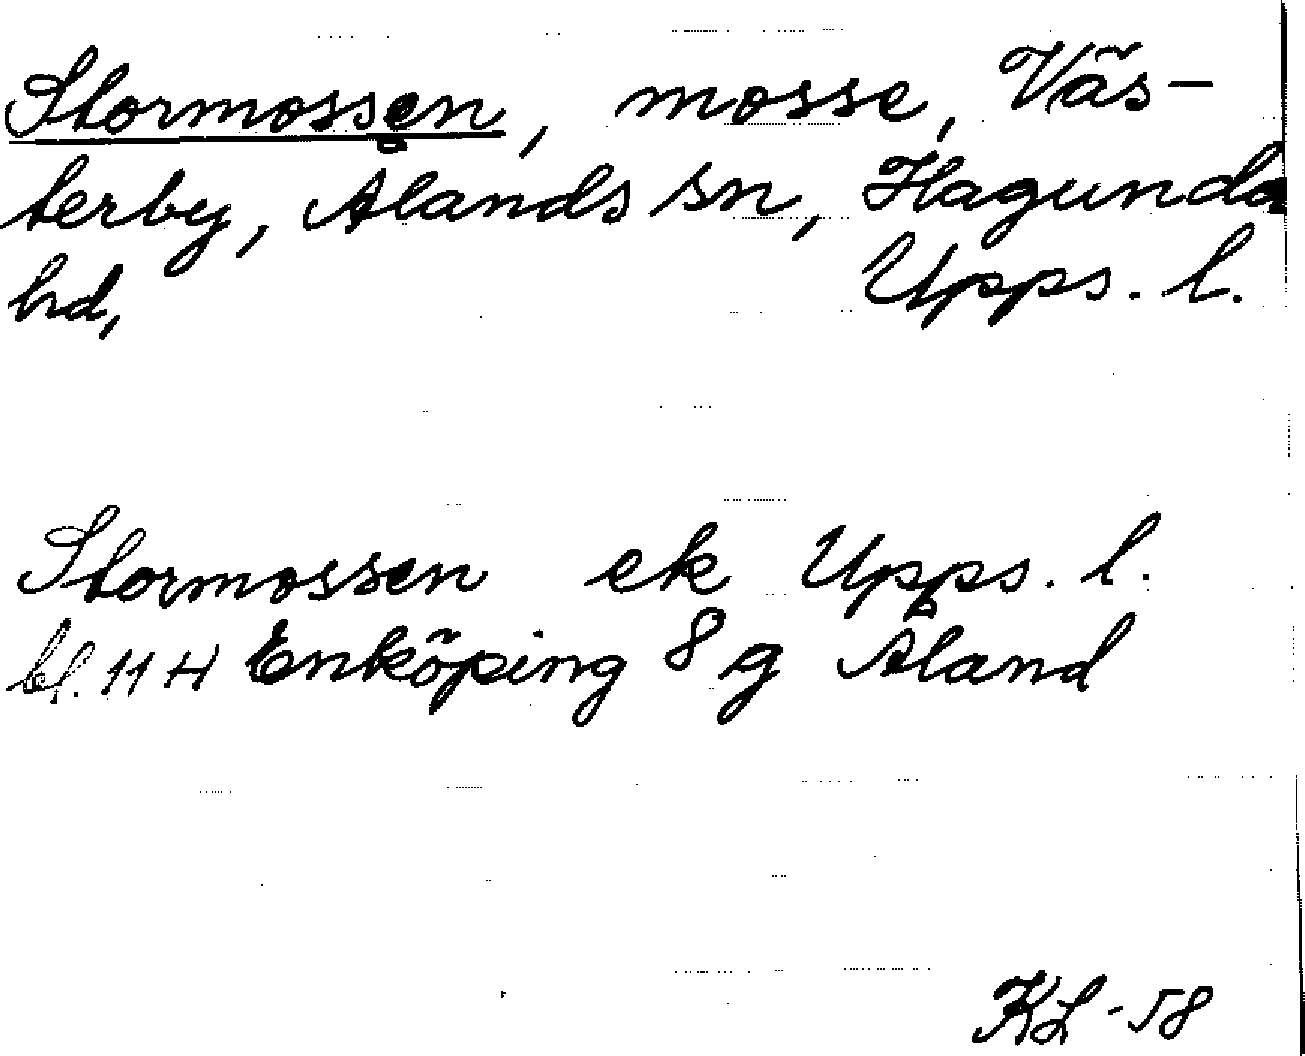 Stormossen, mosse, Väs-
terby, Ålands sn, Hagunda
hd, Upps. l.
Stormossen ek Upps. l.
bl. 11 H Enköping 8 g Åland
KL-58